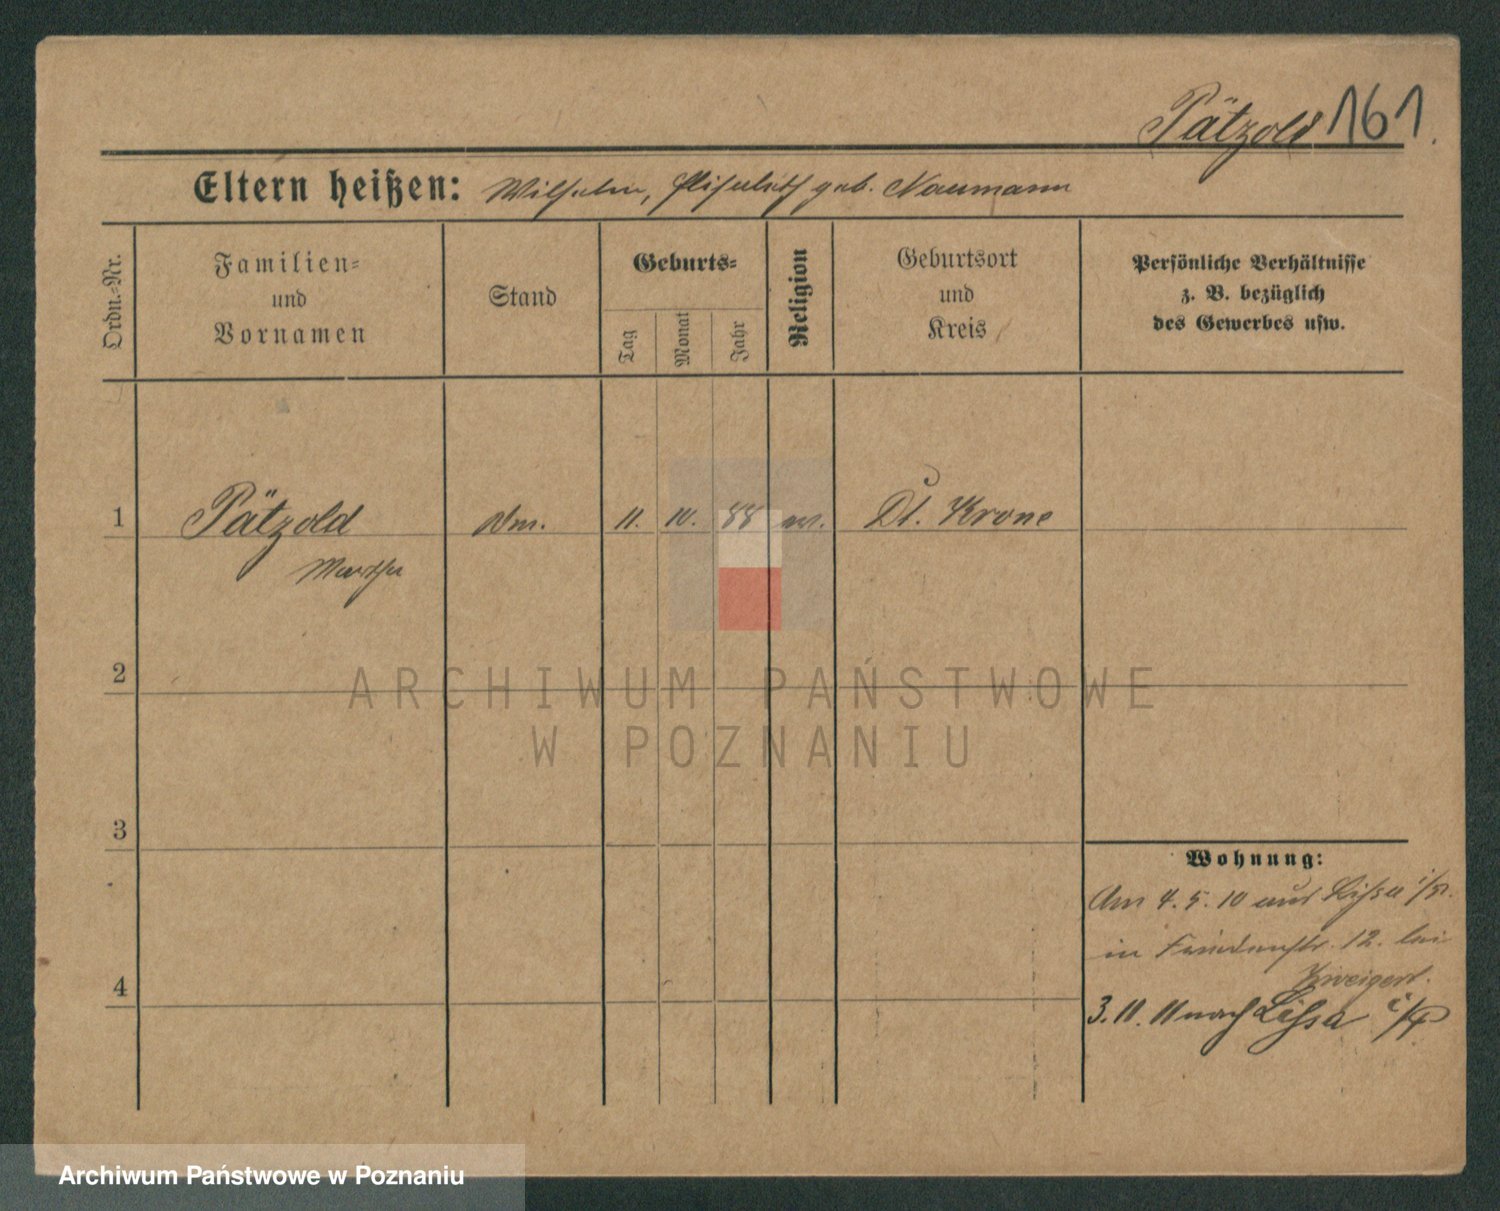 Pätzold 161.
Eltern heißen: Wilhelm, Elisabeth geb. Naumann
Ordn.-Nr.
Familien-
und
Vornamen
Stand
Geburts-
Tag
Monat
Jahr
Religion
Geburtsort
und
Kreis
Persönliche Verhältnisse
z. B. bezüglich
des Gewerbes usw.
1 Pätzold 11. 10. 88 ev. Dt. Krone
Martha
2
3
4
Wohnung:
Am 4. 5. 10 aus Lissa i/P.
in Friedenstr. 12. bei
Zweigert.
3. 11. 11 nach Lissa i/P
ARCHIWUM PAŃSTWOWE
W POZNANIU
Archiwum Państwowe w Poznaniu